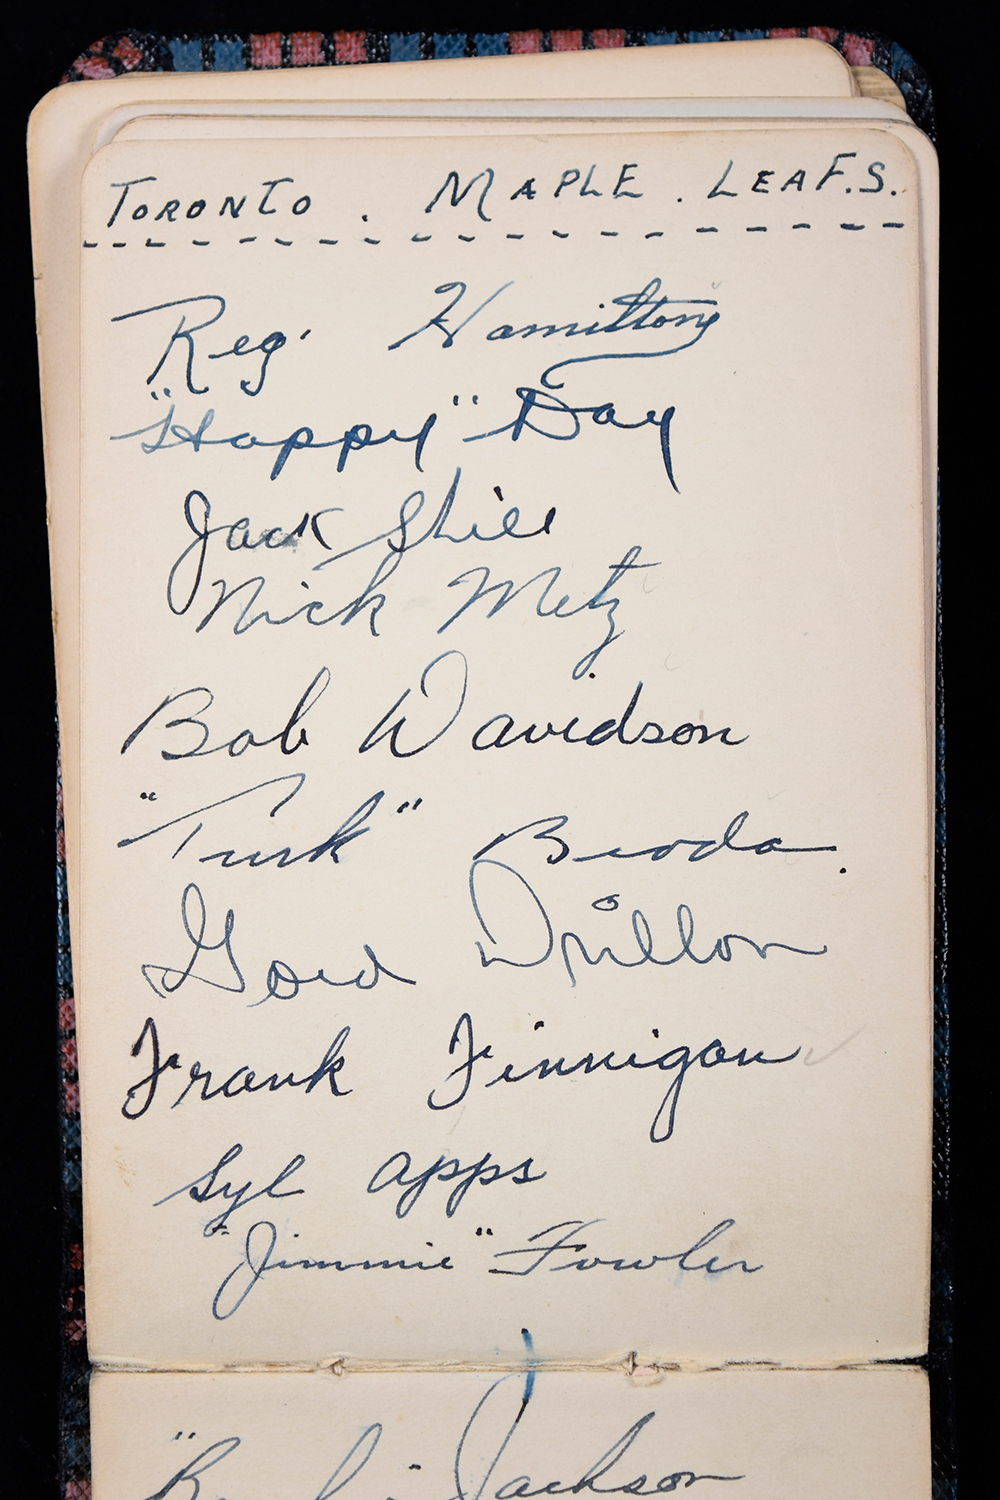 TORONTO . MAPLE . LEAF.S.
Reg. Hamilton
"Happy" Day
Jack Shill
Nick Metz
Bob Davidson
"Turk" Broda.
Gord Drillon
Frank Finnigan
Syl Apps
"Jimmie" Fowler
Jackson